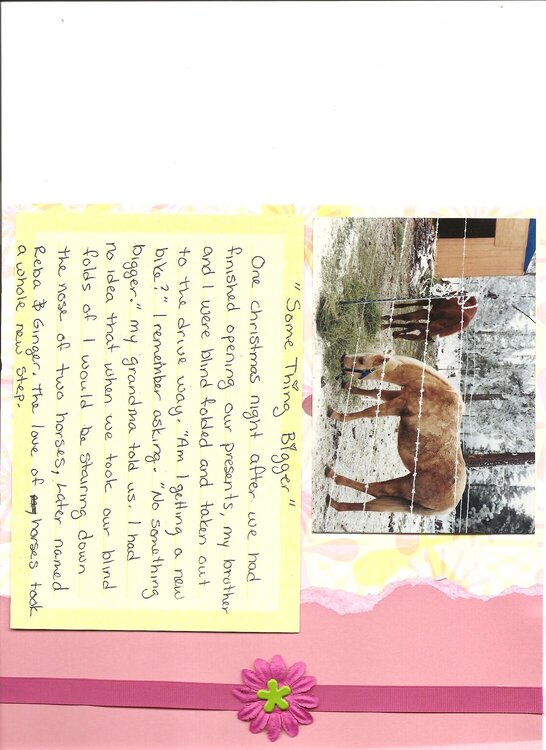 "Some Thing Bigger"
One christmas night after we had
finished opening our presents, my brother
and I were blind folded and taken out
to the drive way. "Am I getting a new
bike?" I remember asking. "No something
bigger." my grandma told us. I had
no idea that when we took our blind
folds of I would be staring down
the nose of two horses, Later named
Reba & Ginger, the love of horses took
a whole new step.